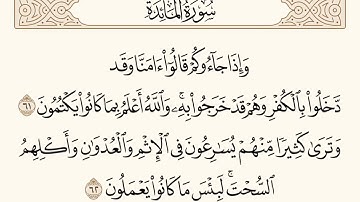 سُورَةُ المَائِدَةِ
وَإِذَا جَآءُوكُمْ قَالُوٓا۟ ءَامَنَّا وَقَد
دَّخَلُوا۟ بِٱلْكُفْرِ وَهُمْ قَدْ خَرَجُوا۟ بِهِۦۚ وَٱللَّهُ أَعْلَمُ بِمَا كَانُوا۟ يَكْتُمُونَ ٦١
وَتَرَىٰ كَثِيرًا مِّنْهُمْ يُسَٰرِعُونَ فِى ٱلْإِثْمِ وَٱلْعُدْوَٰنِ وَأَكْلِهِمُ
ٱلسُّحْتَۚ لَبِئْسَ مَا كَانُوا۟ يَعْمَلُونَ ٦٢